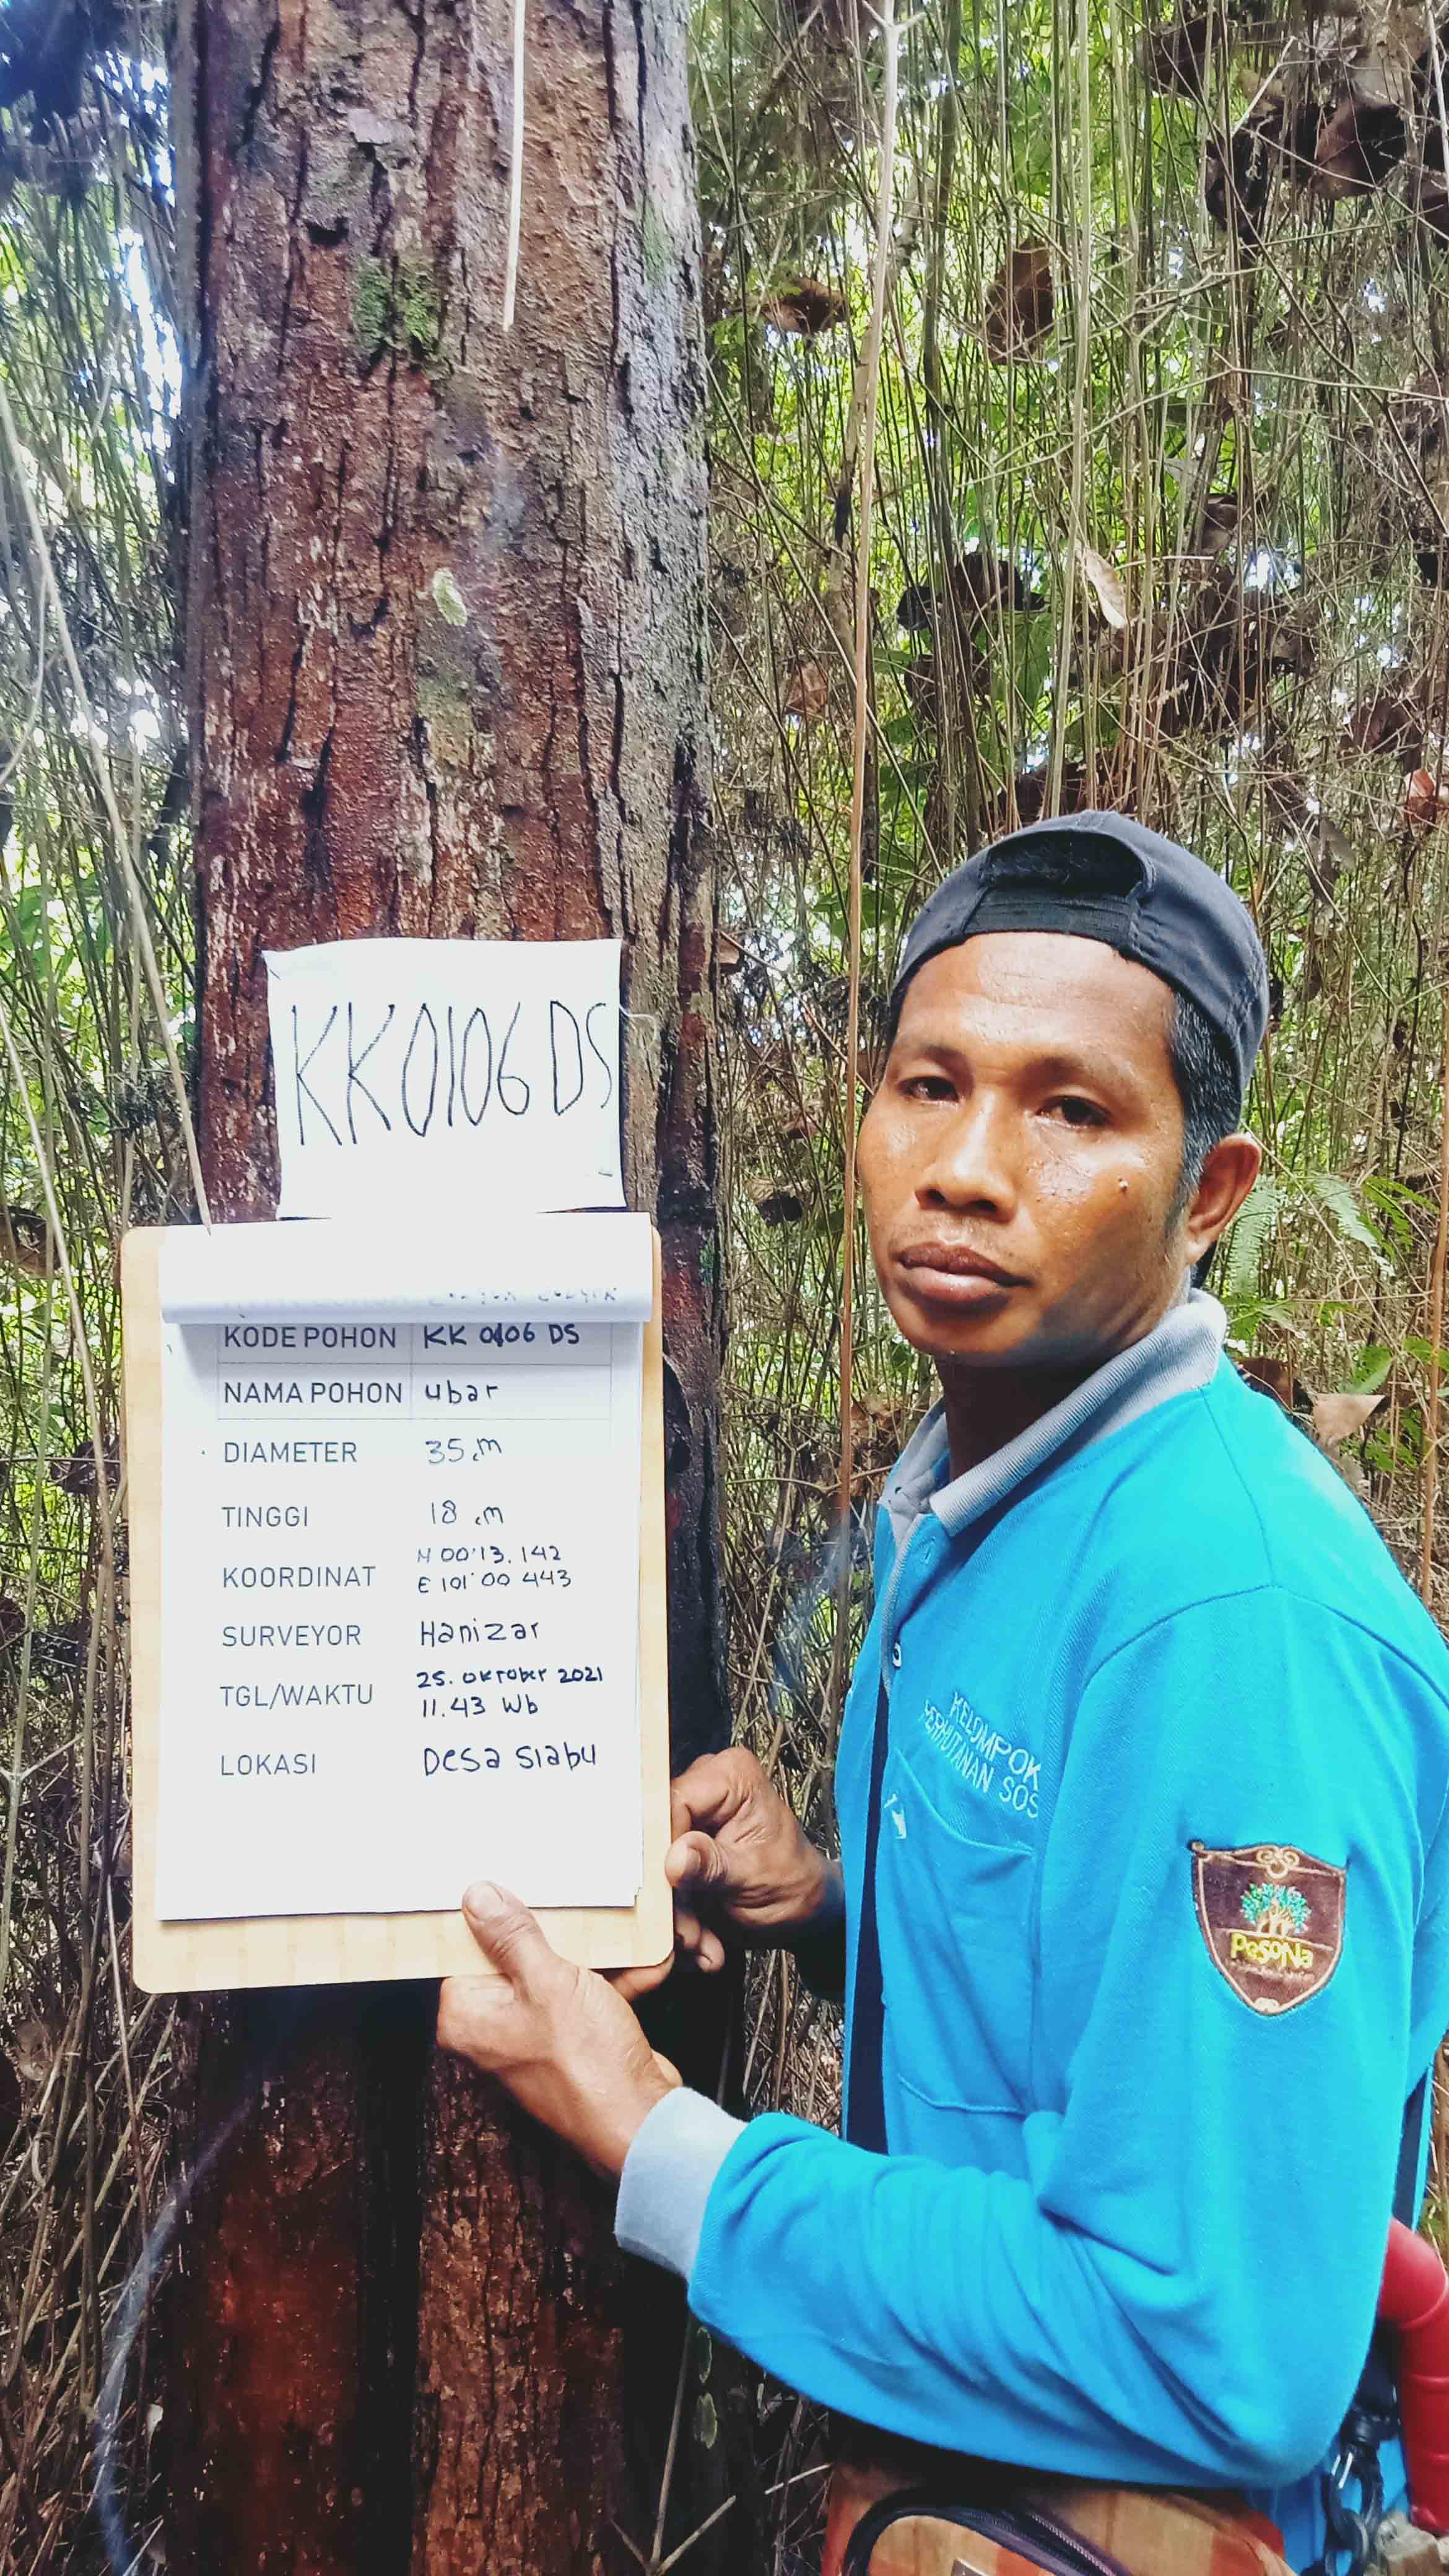 KK0106 DS
KODE POHON KK 0106 DS
NAMA POHON ubar
DIAMETER 35 cm
TINGGI 18 .m
KOORDINAT N 00°13.142
E 101°00 443
SURVEYOR Hanizar
TGL/WAKTU 25. oktober 2021
11.43 Wb
LOKASI Desa Siabu
KELOMPOK
PERHUTANAN SOS
PeSoNa